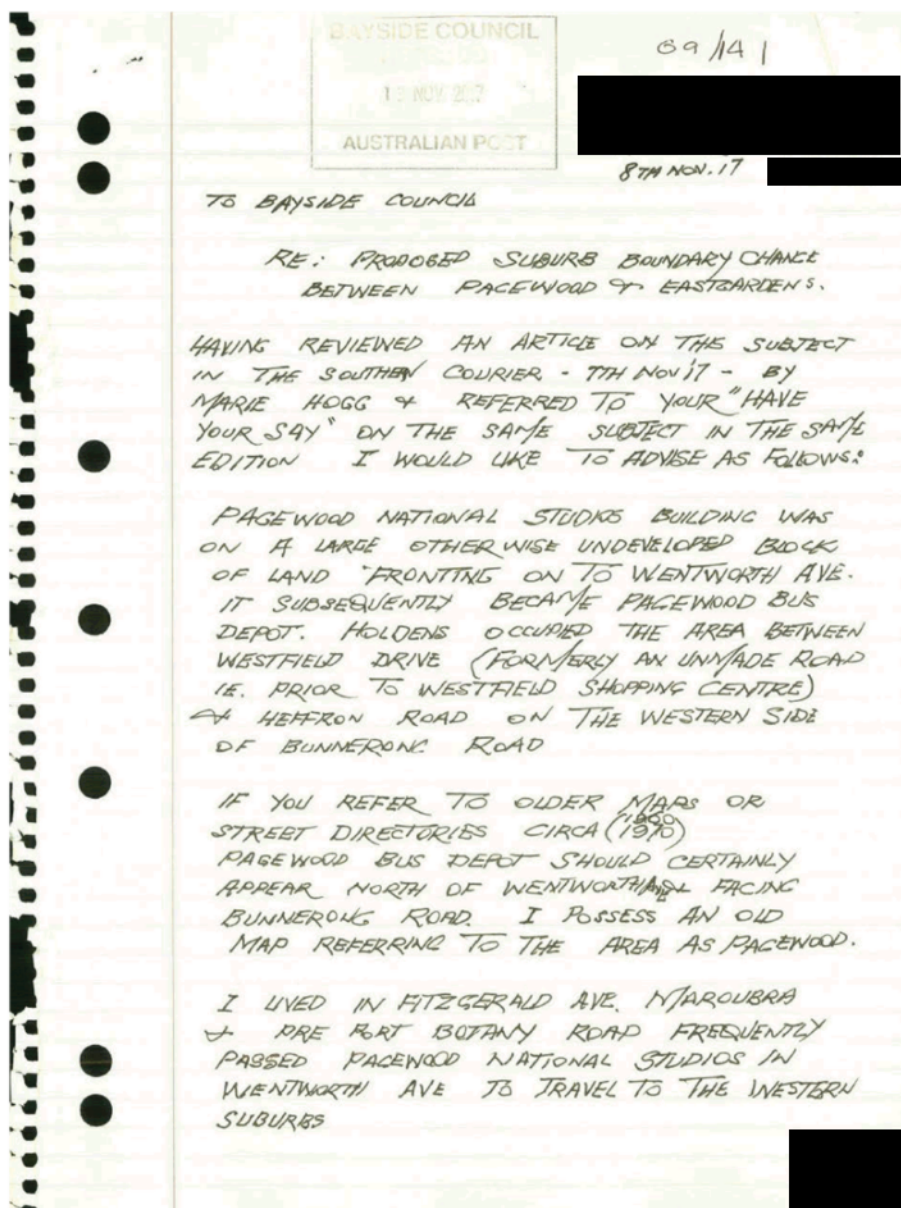 BAYSIDE COUNCIL
13 NOV 2017
AUSTRALIAN POST
09/141
8TH NOV. 17
TO BAYSIDE COUNCIL
RE: PROPOSED SUBURB BOUNDARY CHANGE
BETWEEN PAGEWOOD & EASTGARDENS.
HAVING REVIEWED AN ARTICLE ON THE SUBJECT
IN THE SOUTHERN COURIER - 7TH NOV 17 - BY
MARIE HOGG & REFERRED TO YOUR "HAVE
YOUR SAY" ON THE SAME SUBJECT IN THE SAME
EDITION I WOULD LIKE TO ADVISE AS FOLLOWS:
PAGEWOOD NATIONAL STUDIOS BUILDING WAS
ON A LARGE OTHERWISE UNDEVELOPED BLOCK
OF LAND FRONTING ON TO WENTWORTH AVE.
IT SUBSEQUENTLY BECAME PAGEWOOD BUS
DEPOT. HOLDENS OCCUPIED THE AREA BETWEEN
WESTFIELD DRIVE (FORMERLY AN UNMADE ROAD
IE. PRIOR TO WESTFIELD SHOPPING CENTRE)
& HEFFRON ROAD ON THE WESTERN SIDE
OF BUNNERONG ROAD
IF YOU REFER TO OLDER MAPS OR
STREET DIRECTORIES CIRCA (1970)
PAGEWOOD BUS DEPOT SHOULD CERTAINLY
APPEAR NORTH OF WENTWORTH AVE FACING
BUNNERONG ROAD. I POSSESS AN OLD
MAP REFERRING TO THE AREA AS PAGEWOOD.
I LIVED IN FITZGERALD AVE. MAROUBRA
& PRE PORT BOTANY ROAD FREQUENTLY
PASSED PAGEWOOD NATIONAL STUDIOS IN
WENTWORTH AVE TO TRAVEL TO THE WESTERN
SUBURBS